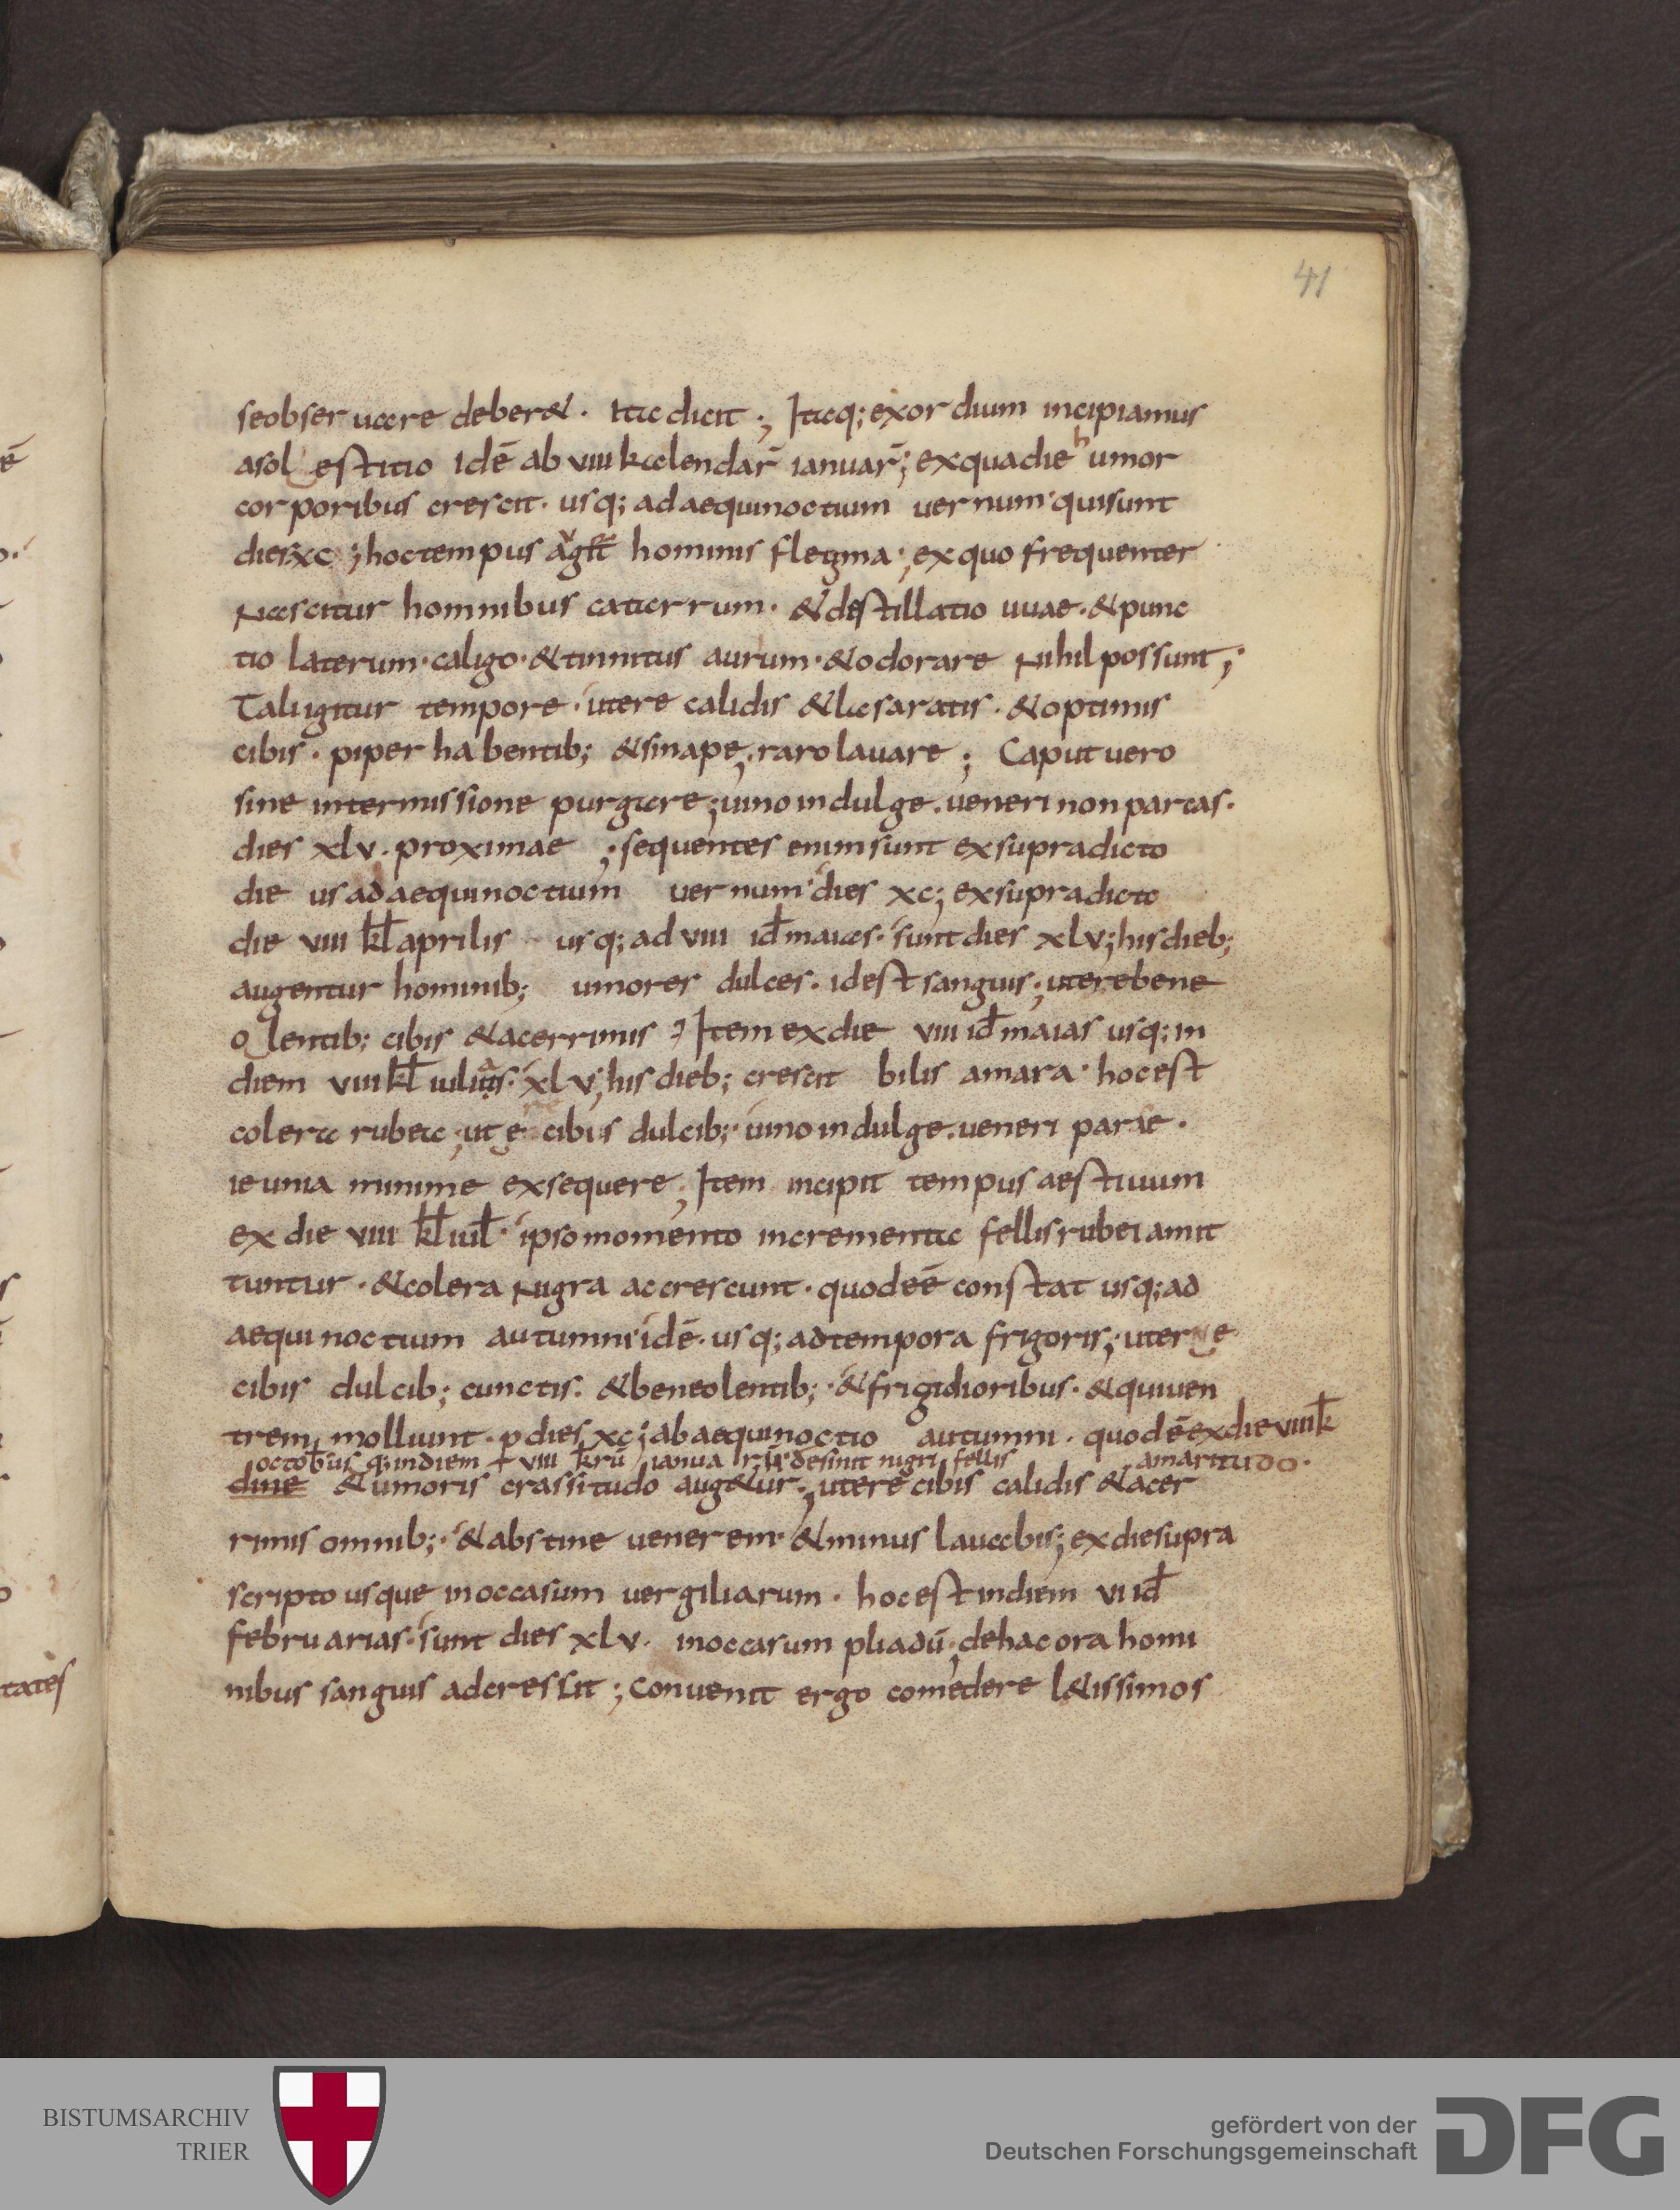 41
seobseruare deber&. Ita dicit; Itaq; exordium incipiamus
asol estitio idē ab viii kalendar̄ ianuar̄; exquadie humor
corporibus crescit. usq; adaequinoctium uernum quisunt
dies xc; hoctempus hominis flegma; exquo frequenter
Nascitur hominibus catarrum. &destillatio uuae. &punc
tio laterum. caligo. &tinnitus aurium. &odorare Nihilpossunt;
Taliigitur tempore. utere calidis &lasaratis. &optimis
cibis. piper habentib; &sinape, rarolauare; Caputuero
sine intermissione purgare; uinoindulge. ueneri nonparcas.
dies xlv. proximae; sequentes enimsunt exsupradicto
die usadaequinoctium uernum dies xc; exsupradicto
die viii kl̄ aprilis usq; ad viii id̄ maias. sunt dies xlv; hisdieb;
augentur hominib; umores dulces. idest sanguis; uterebene
olentib; cibis &acerrimis Item exdie viii id̄ maias usq; in
diem viii kl̄ iulias. xlv; his dieb; crescit bilis amara. hocest
colera rubea; cibis dulcib; uinoindulge. ueneri parce.
ieiunia minime exsequere, Item incipit tempus aestiuum
ex die viii kl̄ iul̄. ipsomomento incrementa fellisrubei amit
tuntur. &colera Nigra accrescunt. quodeē constat usq; ad
aequinoctium autumni idē. usq; adtempora frigoris; utere
cibis dulcib; cunctis. &beneolentib; &frigidioribus. &quiuen
trem molliunt. p dies xc; abaequinoctio autumni. quodē exdie viiik̄
octobus q; indiem viii ianua desinit nigri fellis amaritudo.
dine &umoris crassitudo aug&ur; utere cibis calidis &acer
rimis omnib; &abstine uenerem. &minus lauabis; exdiesupra
scripto usque inoccasum uergiliarum. hocest indiem vi id̄
februarias. sunt dies xlv. inoccasum pliadū; dehac ora homi
nibus sanguis adcrescit; conuenit ergo comedere l&issimos
tates
BISTUMSARCHIV
TRIER
gefördert von der
Deutschen Forschungsgemeinschaft
DFG